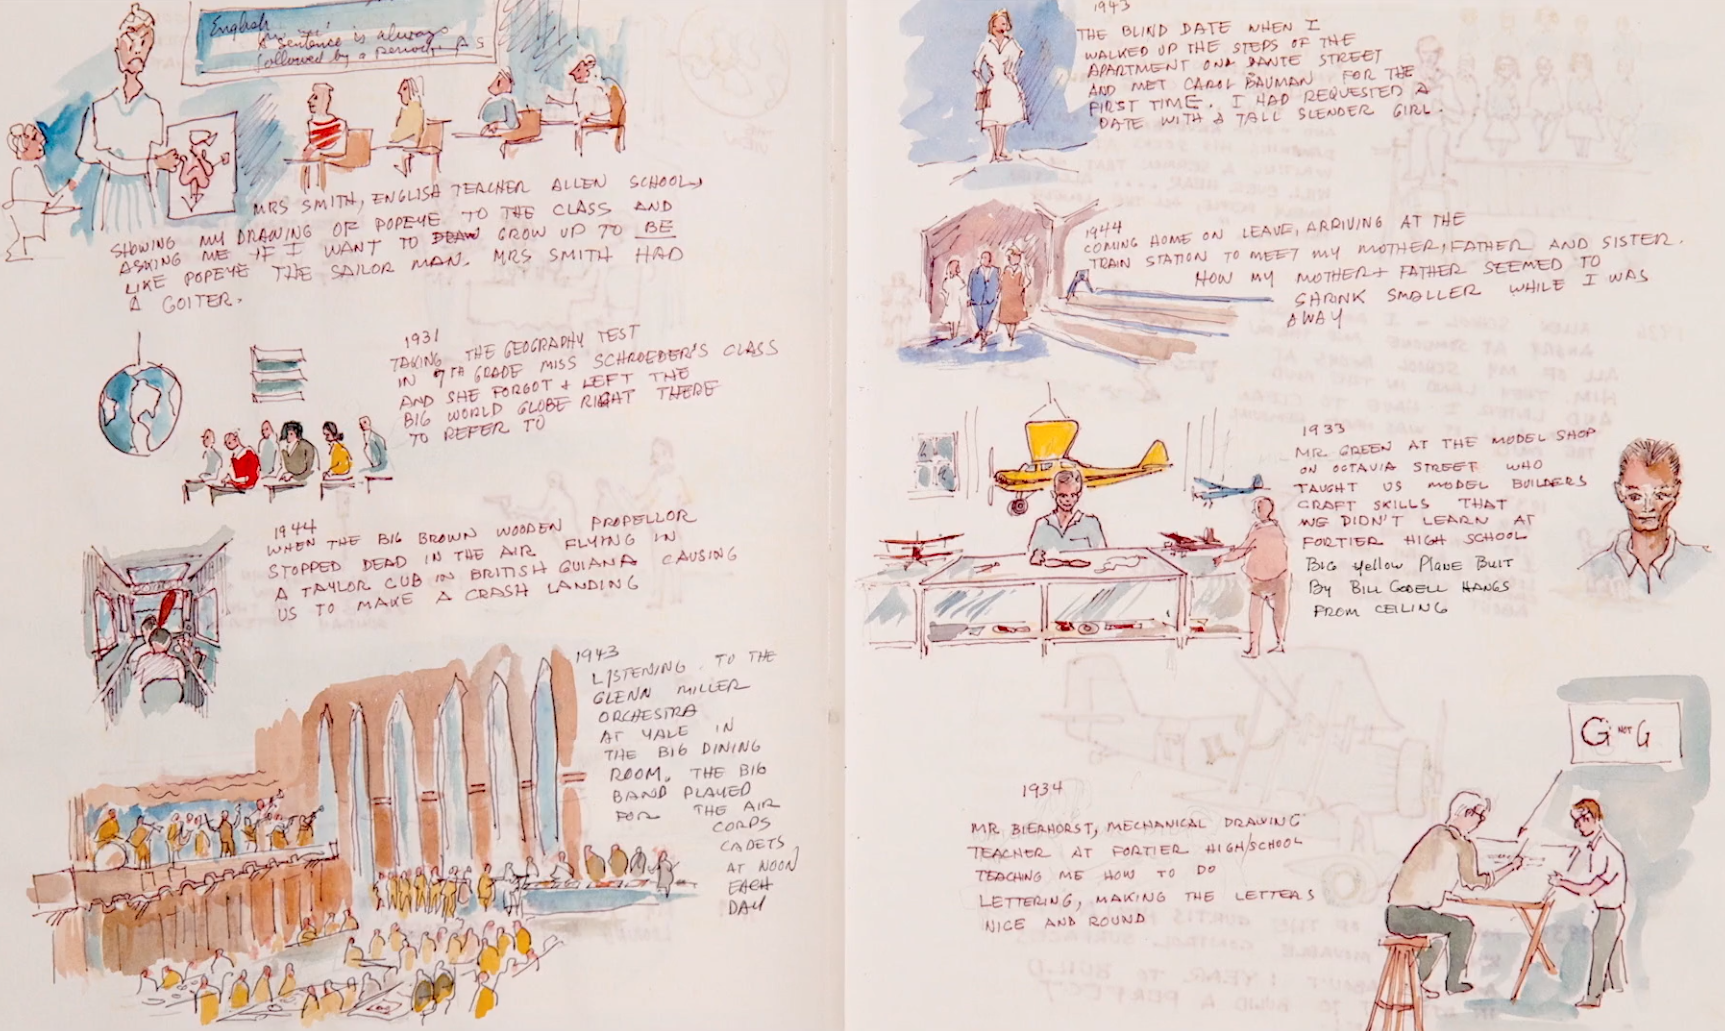 English
A sentence is always
followed by a period.
MRS SMITH, ENGLISH TEACHER ALLEN SCHOOL,
SHOWING MY DRAWING OF POPEYE TO THE CLASS AND
ASKING ME IF I WANT TO DRAW GROW UP TO BE
LIKE POPEYE THE SAILOR MAN. MRS SMITH HAD
A GOITER.
1931
TAKING THE GEOGRAPHY TEST
IN 7TH GRADE MISS SCHROEDER'S CLASS
AND SHE FORGOT + LEFT THE
BIG WORLD GLOBE RIGHT THERE
TO REFER TO
1944
WHEN THE BIG BROWN WOODEN PROPELLOR
STOPPED DEAD IN THE AIR FLYING IN
A TAYLOR CUB IN BRITISH GUIANA CAUSING
US TO MAKE A CRASH LANDING
1943
LISTENING TO THE
GLENN MILLER
ORCHESTRA
AT YALE IN
THE BIG DINING
ROOM. THE BIG
BAND PLAYED
FOR THE AIR
CORPS
CADETS
AT NOON
EACH
DAY
1943
THE BLIND DATE WHEN I
WALKED UP THE STEPS OF THE
APARTMENT ON DANTE STREET
AND MET CAROL BAUMAN FOR THE
FIRST TIME. I HAD REQUESTED A
DATE WITH A TALL SLENDER GIRL.
1944
COMING HOME ON LEAVE, ARRIVING AT THE
TRAIN STATION TO MEET MY MOTHER, FATHER AND SISTER.
HOW MY MOTHER + FATHER SEEMED TO
SHRINK SMALLER WHILE I WAS
AWAY
1933
MR. GREEN AT THE MODEL SHOP
ON OCTAVIA STREET WHO
TAUGHT US MODEL BUILDERS
CRAFT SKILLS THAT
WE DIDN'T LEARN AT
FORTIER HIGH SCHOOL
BIG Yellow Plane Buit
By BILL GODELL HANGS
FROM CEILING
G NOT G
1934
MR BIERHORST, MECHANICAL DRAWING
TEACHER AT FORTIER HIGH/SCHOOL
TEACHNG ME HOW TO DO
LETTERING, MAKING THE LETTERS
NICE AND ROUND